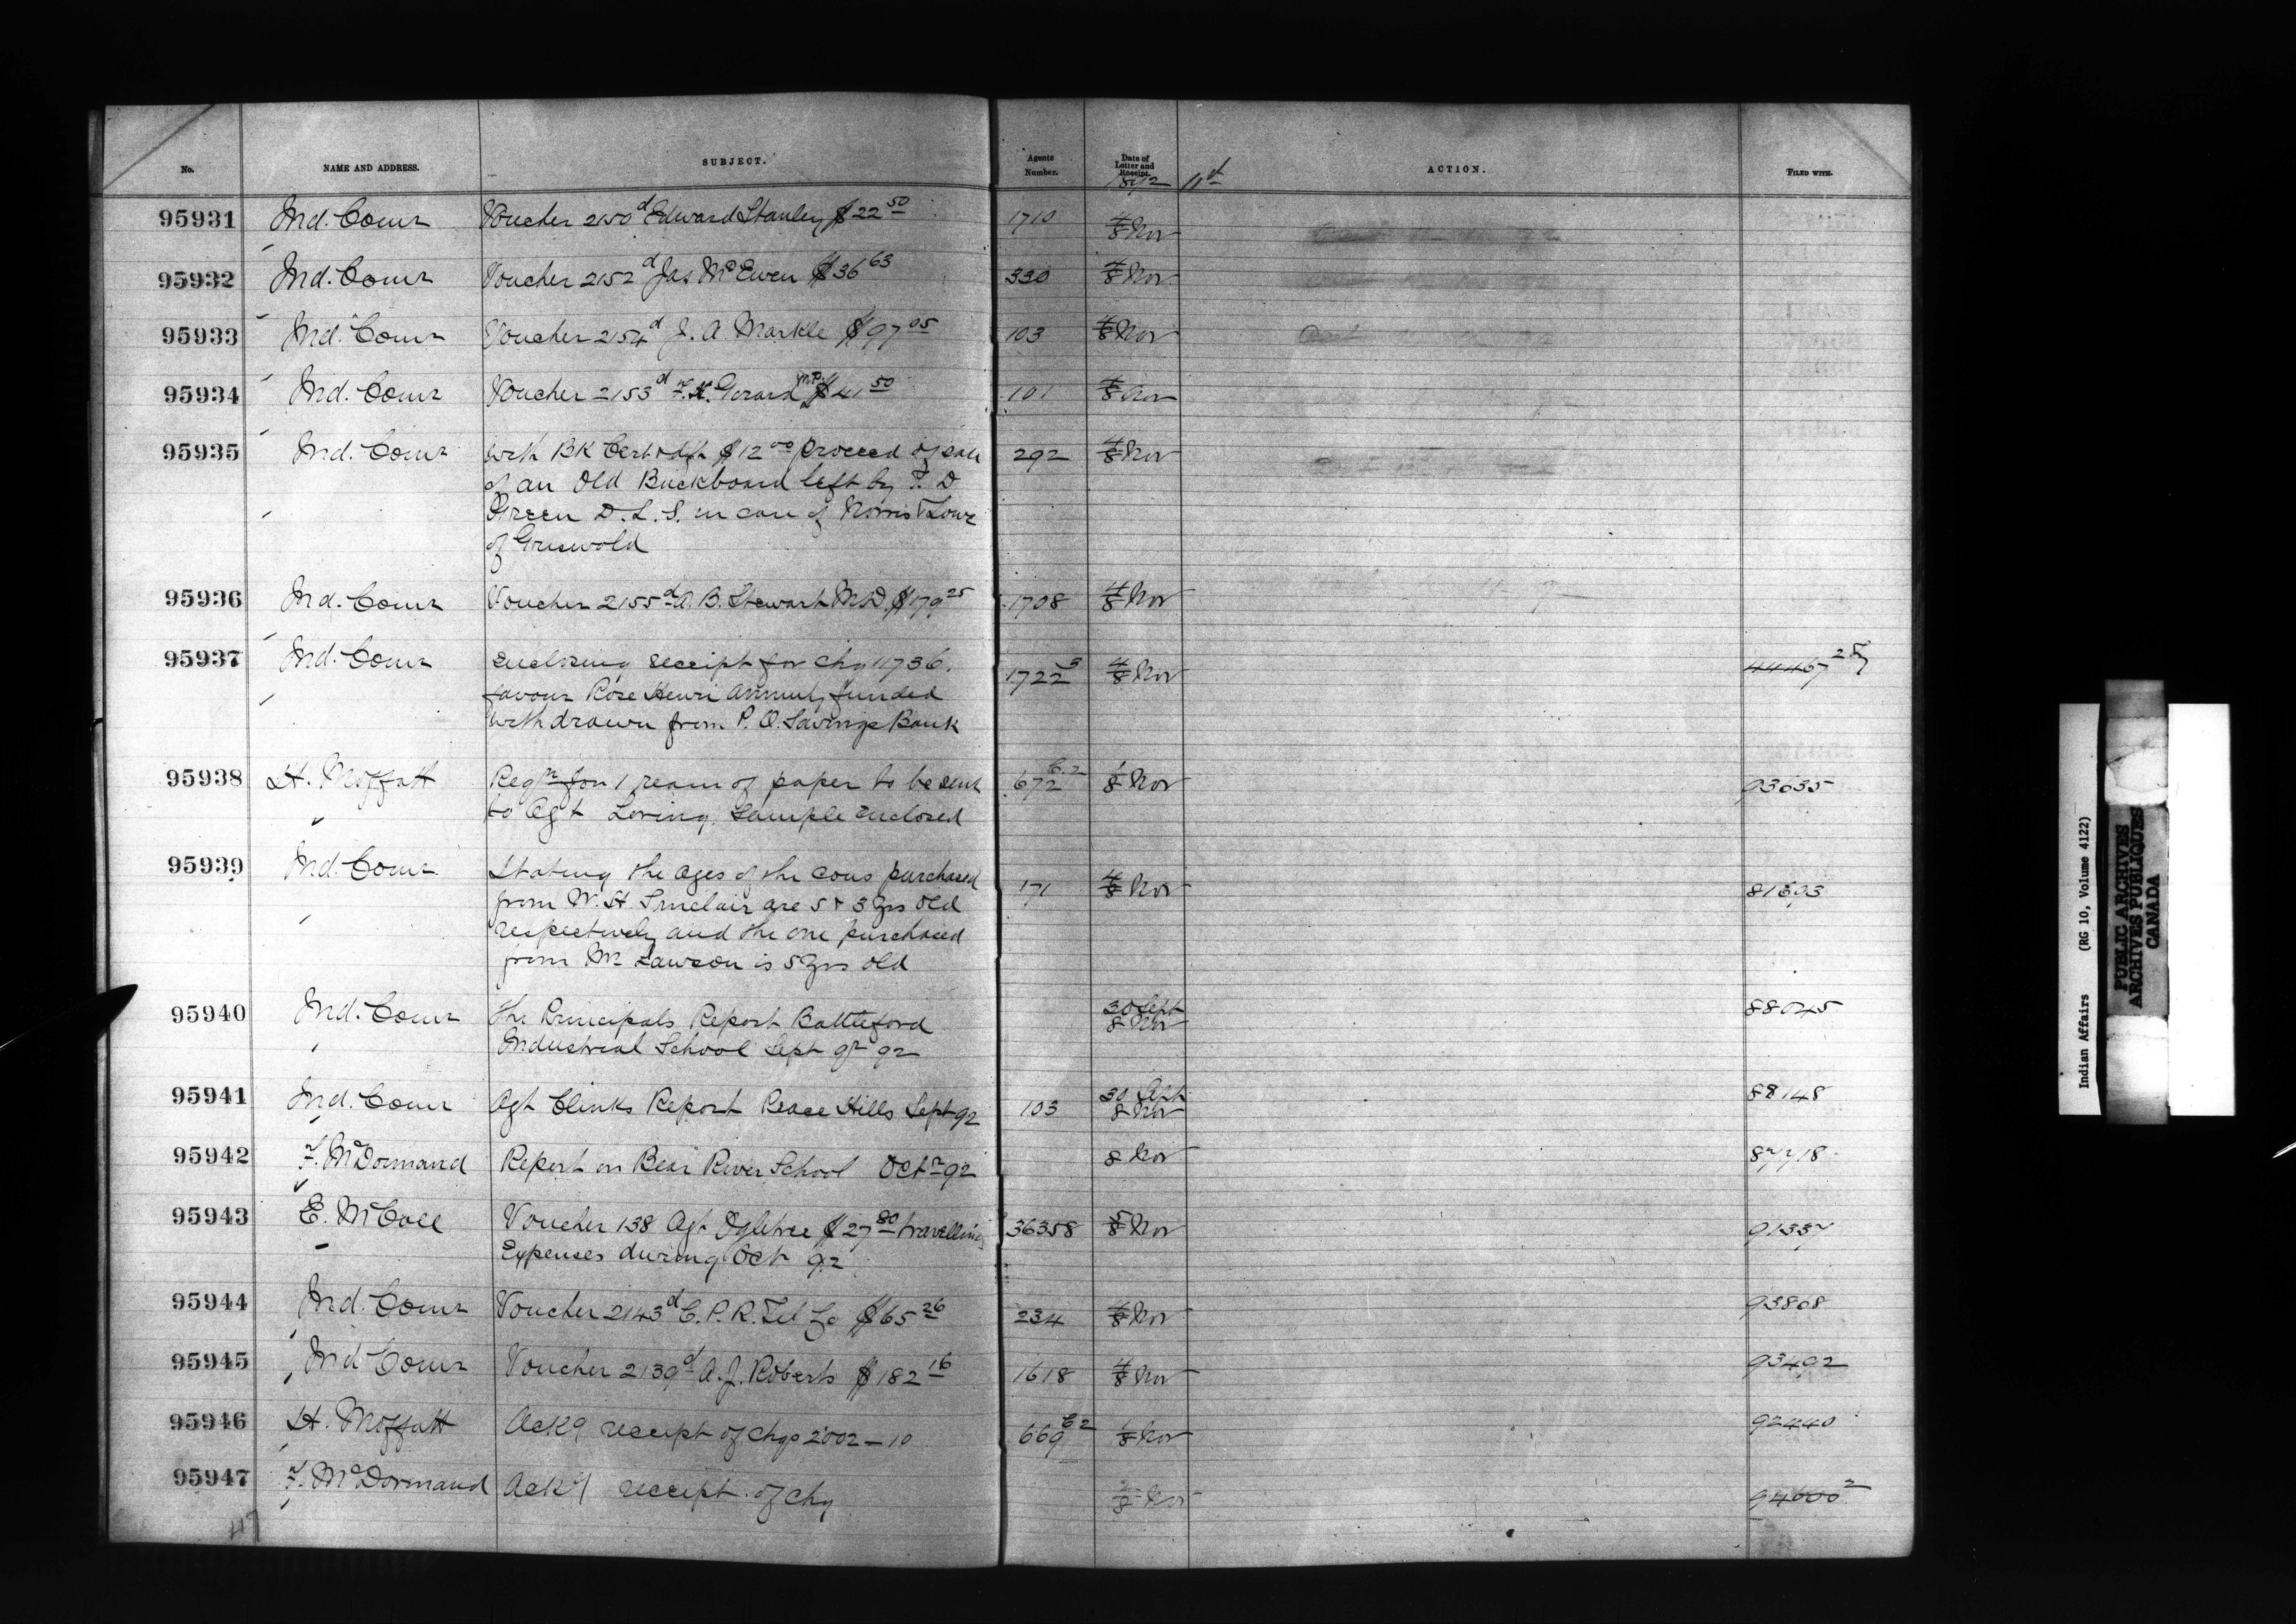 No. NAME AND ADDRESS. SUBJECT. Agents Number. Date of Letter and Receipt. ACTION. FILED WITH.
1892
95931 Ind. Comr Voucher 2150 d Edward Stanley $22 50 1710 4/8 Nov
95932 Ind. Comr Voucher 2152 d Jas McEwen $36 63 330 4/8 Nov
95933 Ind. Comr Voucher 2154 d J. A. Markle $97 05 103 4/8 Nov
95934 Ind. Comr Voucher 2153 d $41 50 101 4/8 Nov
95935 Ind. Comr with BK Cert dft $12 00 proceed of sale 292 4/8 Nov
of an Old Buckboard left by F. D
Green D. L. S. in care of Norris & Lowe
of Griswold
95936 Ind. Comr Voucher 2155 d A. B. Stewart M.D. $179 25 1708 4/8 Nov
95937 Ind. Comr enclosing receipt for chq 11736. 1722 3 4/8 Nov 44467
favour Rose Henri Annuity funded
withdrawn from P. O. Savings Bank
95938 H. Moffatt Reqn for 1 ream of paper to be sent 672 C.2 1/8 Nov 93635
to Agt Loring, Sample enclosed
95939 Ind. Comr Stating the ages of the cows purchased 171 4/8 Nov 81693
from W. H. Sinclair are 5 & 3 yrs old
respectively and the one purchased
from Mr Lawson is 5 yrs old
95940 Ind. Comr The Principals Report Battleford 30 Sept 88045
Industrial School Sept qr 92 8 Nov
95941 Ind. Comr Agt Clinks Report Peace Hills Sept 92 103 30 Sept 8 Nov 88148
95942 F. McDormand Report on Bear River School Octr 92 8 Nov 87718
95943 E. McColl Voucher 138 Agt Ogletree $27 80 travelling 36358 5/8 Nov 91337
Expenses during Oct 92
95944 Ind. Comr Voucher 2143 d C. P. R. Tel Co $65 26 234 4/8 Nov 93868
95945 Ind Comr Voucher 2139 d A. J. Roberts $182 16 1618 4/8 Nov 93492
95946 H. Moffatt Ackg receipt of chqs 2002 - 10 669 C2 1/8 Nov 92440
95947 F. McDormand Ackg receipt of chq Nov 94600 2
117
Indian Affairs (RG 10, Volume 4122)
PUBLIC ARCHIVES
ARCHIVES PUBLIQUES
CANADA